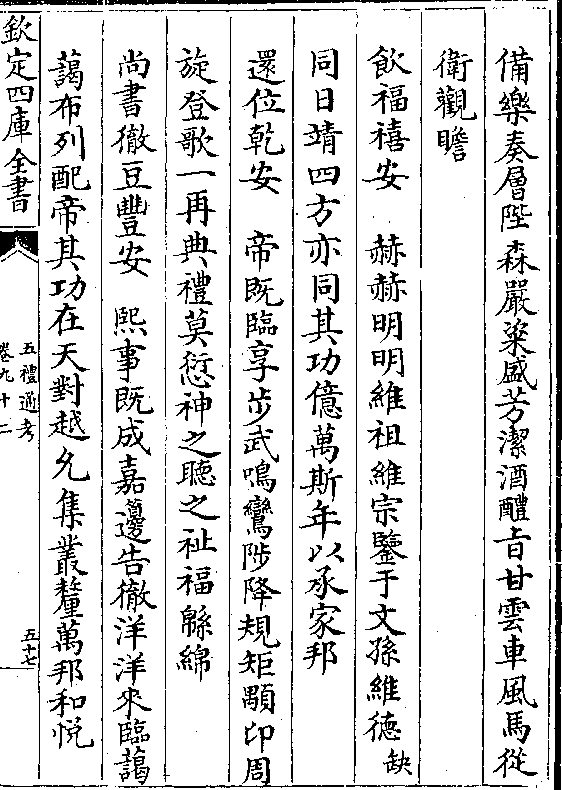 備樂奏層陛森嚴粢盛芳潔酒醴旨甘雲車風馬從
衛觀瞻
飲福禧安　赫赫明明維祖維宗鑒于文孫維德缺
同日靖四方亦同其功億萬斯年以承家邦
還位乾安　帝既臨享步武鳴鸞陟降規矩顒卬周
旋登歌一再典禮莫愆神之聽之祉福緜綿
尚書徹豆豐安　熙事既成嘉籩告徹洋洋來臨藹
藹布列配帝其功在天對越允集叢釐萬邦和悦
欽定四庫全書
五禮通考
卷九十二
五十七